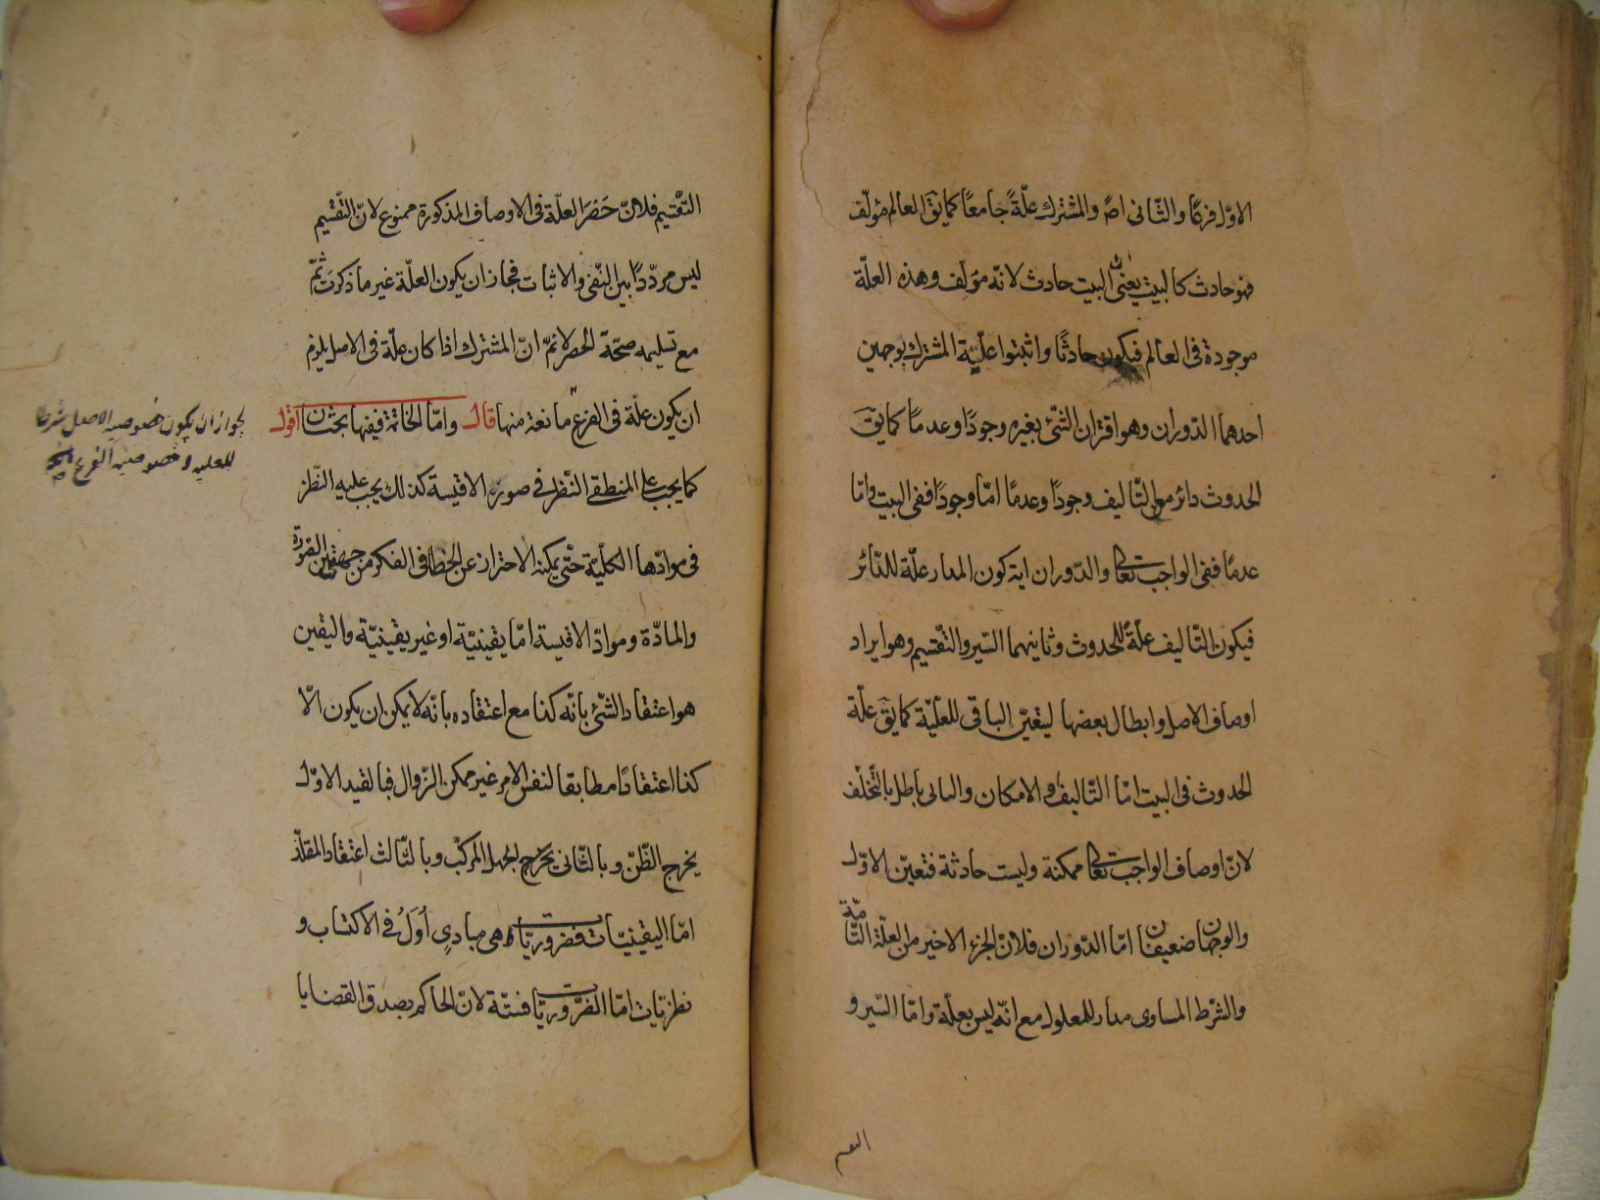 الاوّل فرعًا والثانى اصلًا والمشترك علّةً جامعًا كما يق العالم مؤلّف
فهو حادث كالبيت يعنى البيت حادث لانّه مؤلّف وهذه العلّة
موجودة فى العالم فيكون حادثًا واثبتوا علّيّة المشترك بوجهين
احدهما الدّوران وهو اقتران الشئ بغيره وجودًا وعدمًا كما يق
الحدوث دائر مع التّاليف وجودًا وعدمًا امّا وجودًا ففى البيت وامّا
عدمًا ففى الواجب تعالى والدّوران اية كون المدار علّة للدّائر
فيكون التّاليف علّةً للحدوث وثانيهما السّبر والتّقسيم وهو ايراد
اوصاف الاصل وابطال بعضها ليتعيّن الباقى للعلّيّة كما يق علّة
الحدوث فى البيت امّا التّاليف او الامكان والثانى باطل بالتّخلّف
لانّ اوصاف الواجب تعالى ممكنة وليست حادثة فتعيّن الاوّل
والوجهان ضعيفان امّا الدّوران فلانّ الجزء الاخير من العلّة التّامّة
والشّرط المساوى مدار للمعلول مع انّه ليس بعلّة وامّا السّبر و
التقسيم
التّقسيم فلانّ حصر العلّة فى الاوصاف المذكورة ممنوع لانّ التّقسيم
ليس مردّدًا بين النّفى والاثبات فجاز ان يكون العلّة غير ما ذكرت ثمّ
مع تسليمه صحّة الحصر لا نمّ انّ المشترك اذا كان علّة فى الاصل يلزم
ان يكون علّة فى الفرع مانعة منها قال وامّا الخاتمة ففيها بحثان اقول
لجواز ان يكون خصوصية الاصل شرطا
للعلية وخصوصية الفرع
كما يجب على المنطقى النّظر فى صورة الاقيسة كذلك يجب عليه النّظر
فى موادّها الكلّيّة حتّى يمكنه الاحتراز عن الخطأ فى الفكر من جهتى الصّورة
والمادّة وموادّ الاقيسة امّا يقينيّة او غير يقينيّة واليقين
هو اعتقاد الشّئ بانّه كذا مع اعتقاده بانّه لا يمكن ان يكون الّا
كذا اعتقادًا مطابقا لنفس الامر غير ممكن الزّوال فبالقيد الاوّل
يخرج الظّنّ وبالثّانى يخرج الجهل المركّب وبالثّالث اعتقاد المقلّد
امّا اليقينيّات فضروريّات هى مبادى اُوَلُ فى الاكتساب و
نظريّات امّا الضّروريّات فستّة لانّ الحاكم بصدق القضايا